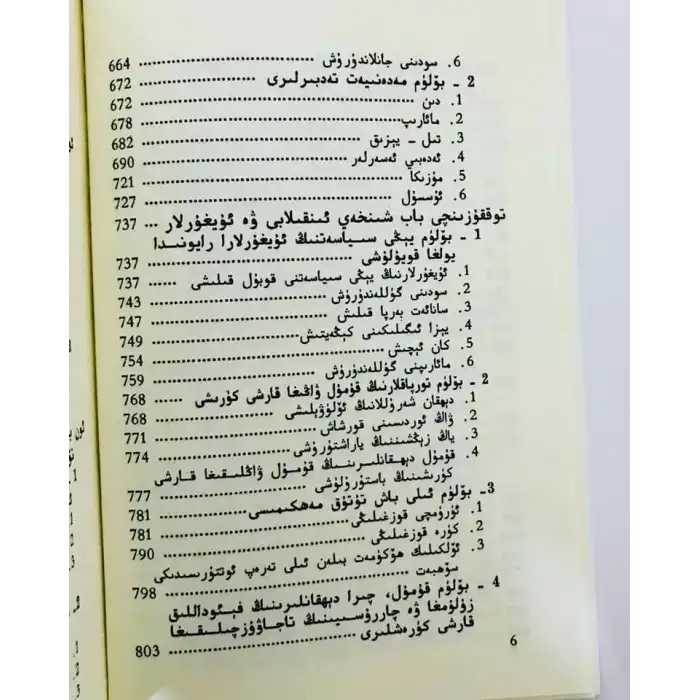 6. سودىنى جانلاندۇرۇش ........ 664
2 - بۆلۈم مەدەنىيەت تەدبىرلىرى ........ 672
1. دىن ........ 672
2. مائارىپ ........ 678
3. تىل - يېزىق ........ 682
4. ئەدەبىي ئەسەرلەر ........ 690
5. مۇزىكا ........ 721
6. ئۇسسۇل ........ 727
توققۇزىنچى باب شىنخەي ئىنقىلابى ۋە ئۇيغۇرلار ... 737
1 - بۆلۈم يېڭى سىياسەتنىڭ ئۇيغۇرلارا رايونىدا
يولغا قويۇلۇشى ........ 737
1. ئۇيغۇرلارنىڭ يېڭى سىياسەتنى قوبۇل قىلىشى ...... 737
2. سودىنى گۈللەندۈرۈش ........ 743
3. سانائەت بەرپا قىلىش ........ 747
4. يېزا ئىگىلىكىنى كېڭەيتىش ........ 749
5. كان ئېچىش ........ 754
6. مائارىپنى گۈللەندۈرۈش ........ 759
2 - بۆلۈم تورپاقلارنىڭ قۇمۇل ۋاڭىغا قارشى كۈرىشى ...... 768
1. دېھقان شەرۇللانىڭ ئۆلۈۋېلىشى ........ 768
2. ۋاڭ ئوردىسىنى قورشاش ........ 771
3. ياڭ زېڭشىننىڭ ياراشتۇرۇشى ........ 774
4. قۇمۇل دېھقانلىرىنىڭ قۇمۇل ۋاڭلىقىغا قارشى
كۈرىشىنىڭ باستۇرۇلۇشى ........ 777
3- بۆلۈم ئىلى باش تۇتۇق مەھكىمىسى ........ 781
1. ئۈرۈمچى قوزغىلىڭى ........ 781
2. كۈرە قوزغىلىڭى ........ 790
3. ئۆلكىلىك ھۆكۈمەت بىلەن ئىلى تەرەپ ئوتتۇرىسىدىكى
سۆھبەت ........ 798
4 - بۆلۈم قۇمۇل، چىرا دېھقانلىرىنىڭ فېئوداللىق
زۇلۇمغا ۋە چاررۇسىيىنىڭ تاجاۋۇزچىلىقىغا
قارشى كۈرەشلىرى ........ 803
6